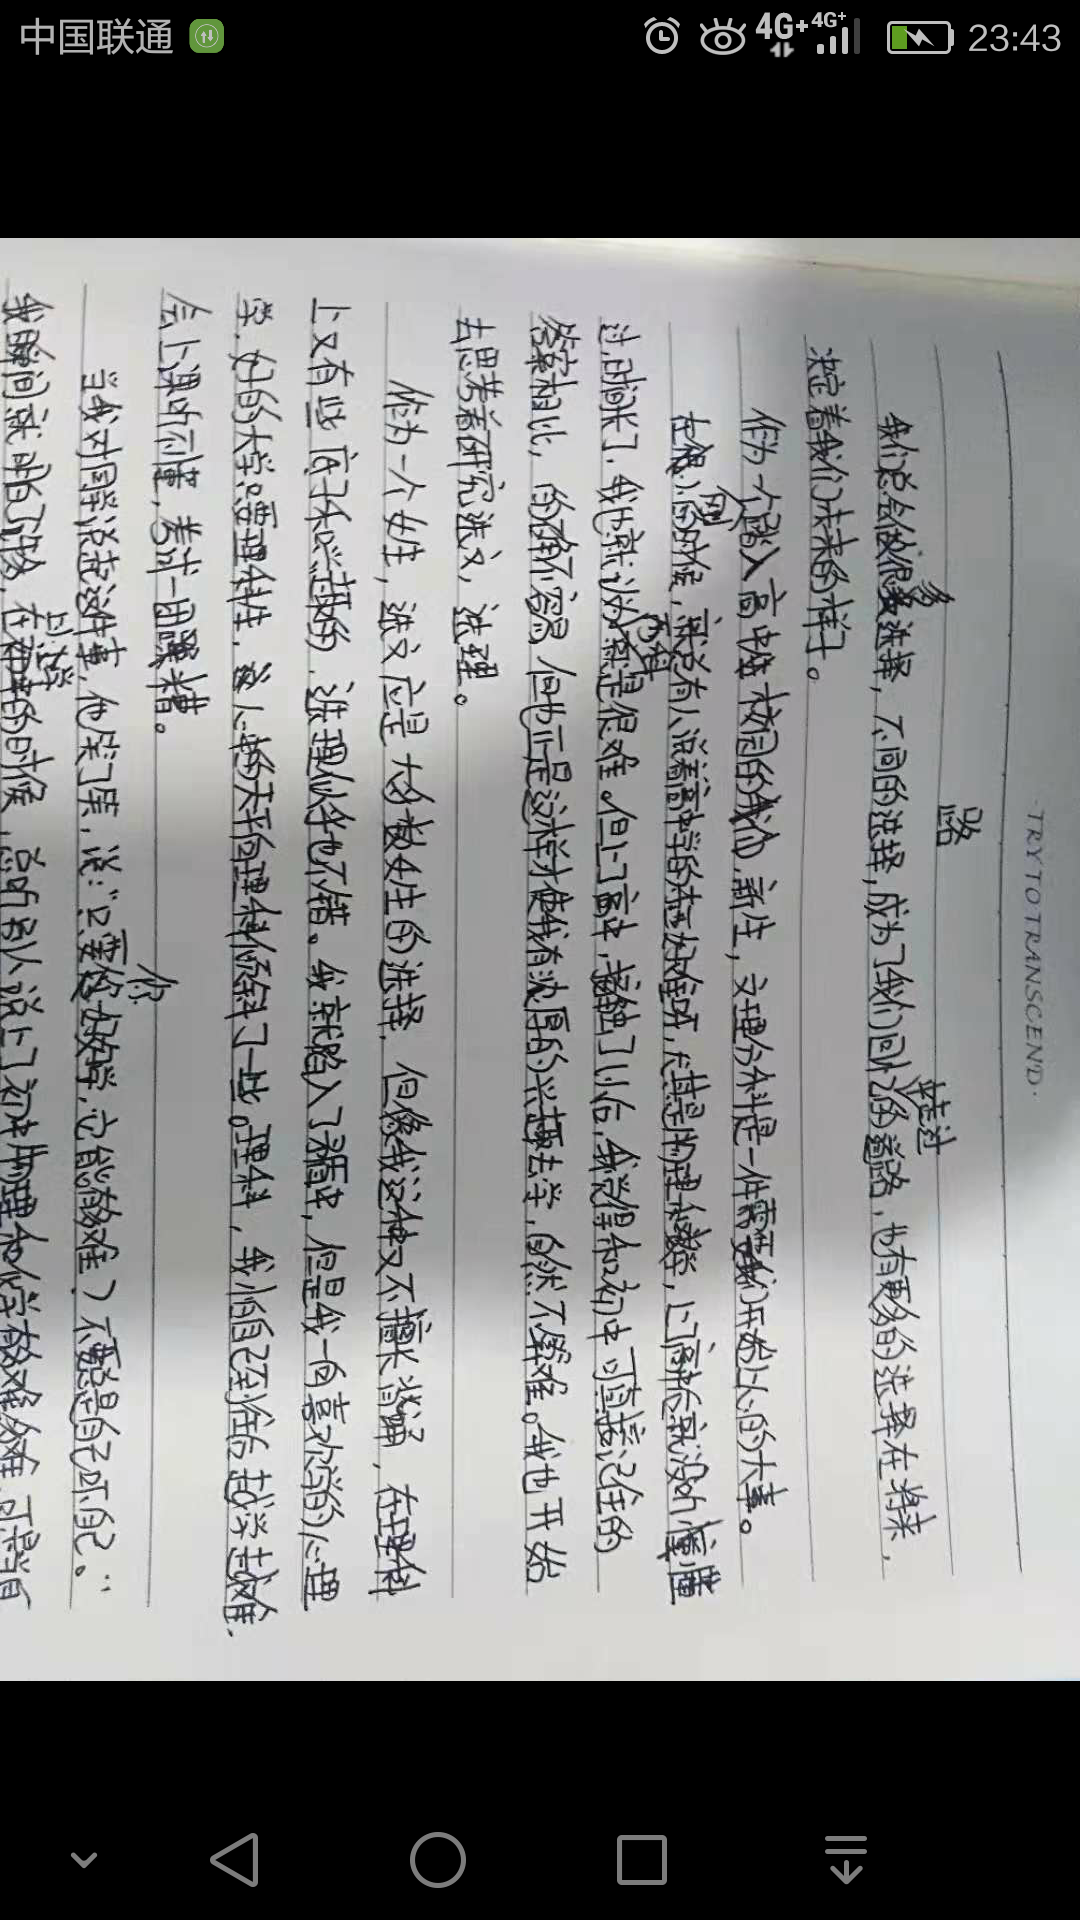 中国联通
4G+ 4G+ 23:43
·TRY TO TRANSCEND·
路
我们总会做很多选择，不同的选择，成为了我们回忆里走过的道路，也有更多的选择在将来，
决定着我们未来的样子。
作为一个刚踏入高中生校园的我们，新生，文理分科是一件需要我们开始上心的大事。
在的时候，就总有人说着高中学的，尤其是物理化学，上了高中就没听懂
过，时间长了，我也就认为理科就是很难。但上了高中，接触了以后，我觉得和初中可直接记住的
答案相比，的确不容易，但也正是这样才使我有浓厚的兴趣去学，自然不解难。我也开始
去思考着研究选文，选理。
作为一个女生，选文应是大多数女生的选择，但像我这种又不擅长背诵，在理科
上又有些底子和兴趣的，选理似乎也不错。我就陷入了矛盾中，但是我一向喜欢的心理
学，好的大学只要理科生，这心中的天平向理科倾斜了一些。理科，我怕自己到往后越学越难，
会上课听不懂，考试一团糟糟。
当我对同学说起这件事，他笑了笑，说：“只要你好好学，它能有多难？不要总是自己吓自己。”
我瞬间就明白了，在初中的时候，总听别人说上了初中物理和化学有多难多难，可是当真